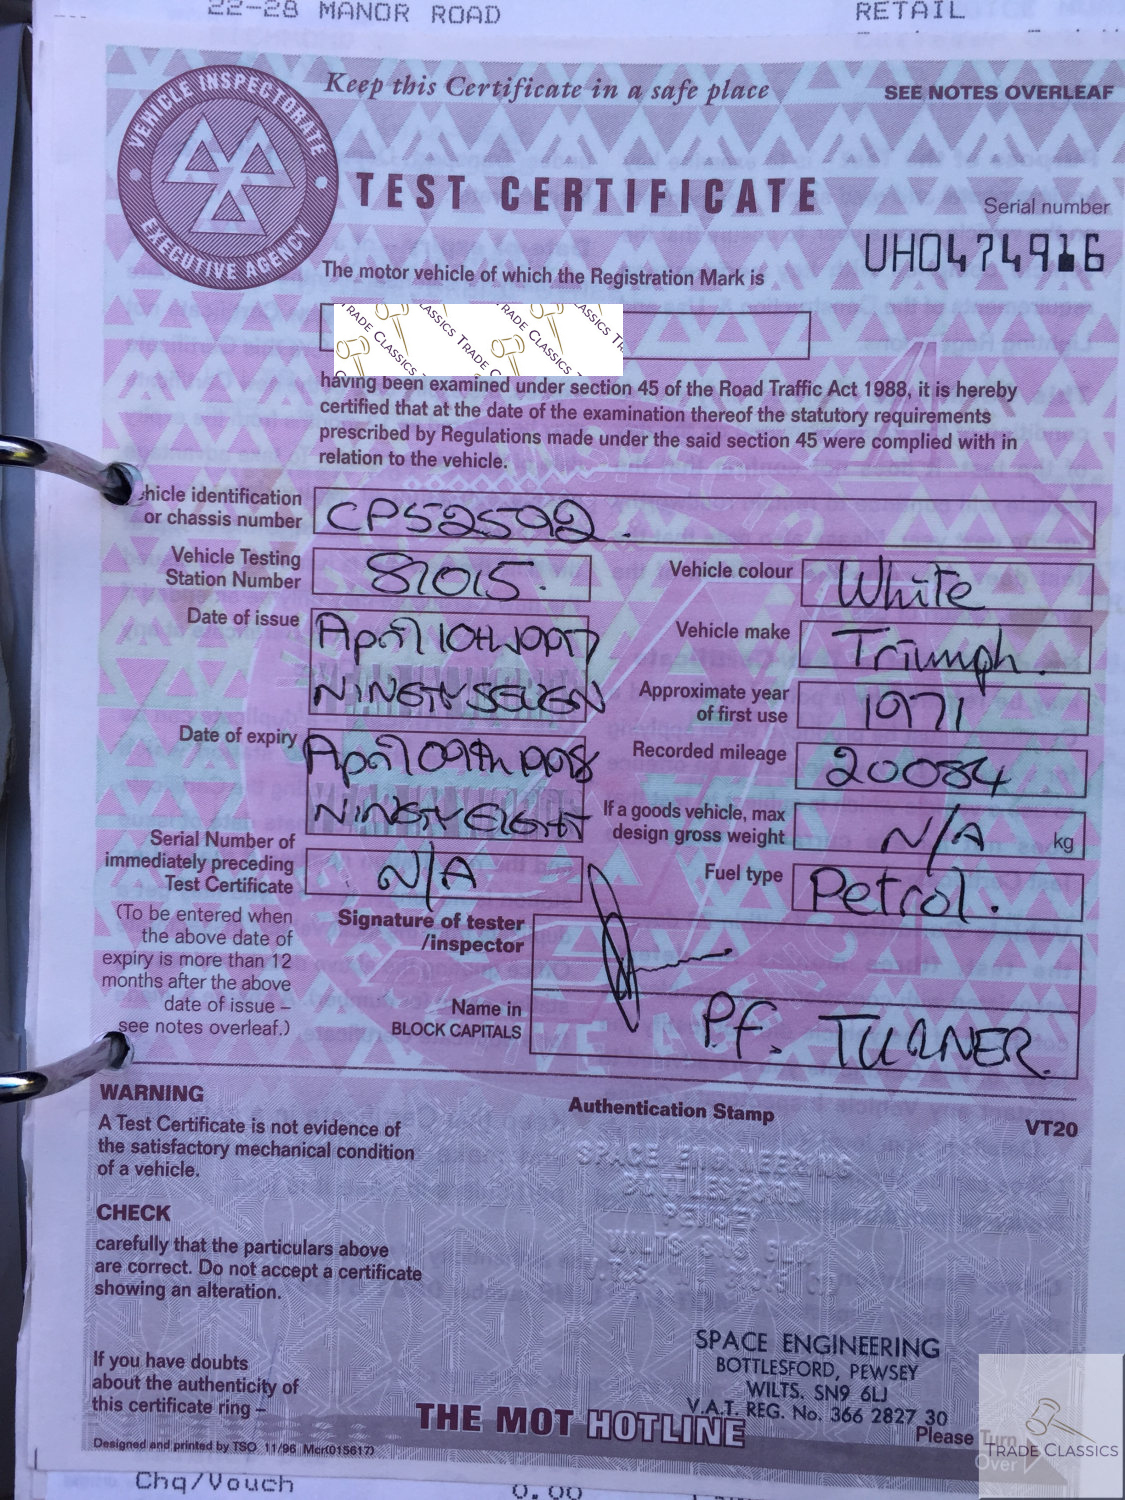 22-28 MANOR ROAD
RETAIL
VEHICLE INSPECTORATE
EXECUTIVE AGENCY
Keep this Certificate in a safe place
SEE NOTES OVERLEAF
TEST CERTIFICATE
Serial number
UH0474916
The motor vehicle of which the Registration Mark is
TRADE CLASSICS
having been examined under section 45 of the Road Traffic Act 1988, it is hereby
certified that at the date of the examination thereof the statutory requirements
prescribed by Regulations made under the said section 45 were complied with in
relation to the vehicle.
hicle identification
or chassis number
CP52592.
Vehicle Testing
Station Number
87015.
Vehicle colour
White
Date of issue
April 10TH 1997
NINETY SEVEN
Vehicle make
Triumph.
Approximate year
of first use
1971
Date of expiry
April 09th 1998
NINETY EIGHT
Recorded mileage
20084
If a goods vehicle, max
design gross weight
N/A kg
Serial Number of
immediately preceding
Test Certificate
N/A
Fuel type
Petrol.
(To be entered when
the above date of
expiry is more than 12
months after the above
date of issue –
see notes overleaf.)
Signature of tester
/inspector
Name in
BLOCK CAPITALS
P.F. TURNER.
WARNING
A Test Certificate is not evidence of
the satisfactory mechanical condition
of a vehicle.
Authentication Stamp
VT20
SPACE ENGINEERING
BOTTLESFORD
PEWSEY
WILTS SN9 6LJ
CHECK
carefully that the particulars above
are correct. Do not accept a certificate
showing an alteration.
If you have doubts
about the authenticity of
this certificate ring –
THE MOT HOTLINE
SPACE ENGINEERING
BOTTLESFORD, PEWSEY
WILTS. SN9 6LJ
V.A.T. REG. No. 366 2827 30
Please Turn
Over
TRADE CLASSICS
Designed and printed by TSO 11/96 Mcr(015617)
Chq/Vouch
0.00